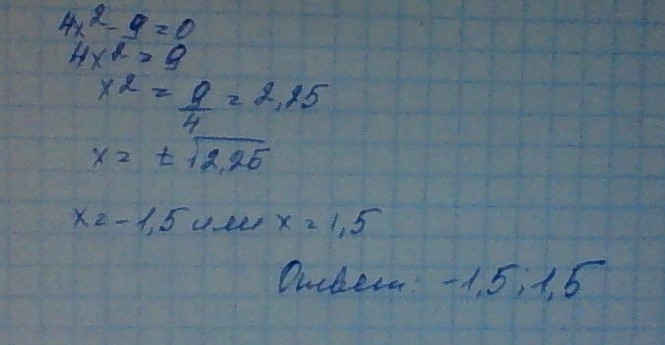 4x² - 9 = 0
4x² = 9
x² = 9/4 = 2,25
x = ± √2,25
x = -1,5 или x = 1,5
Ответ: -1,5; 1,5